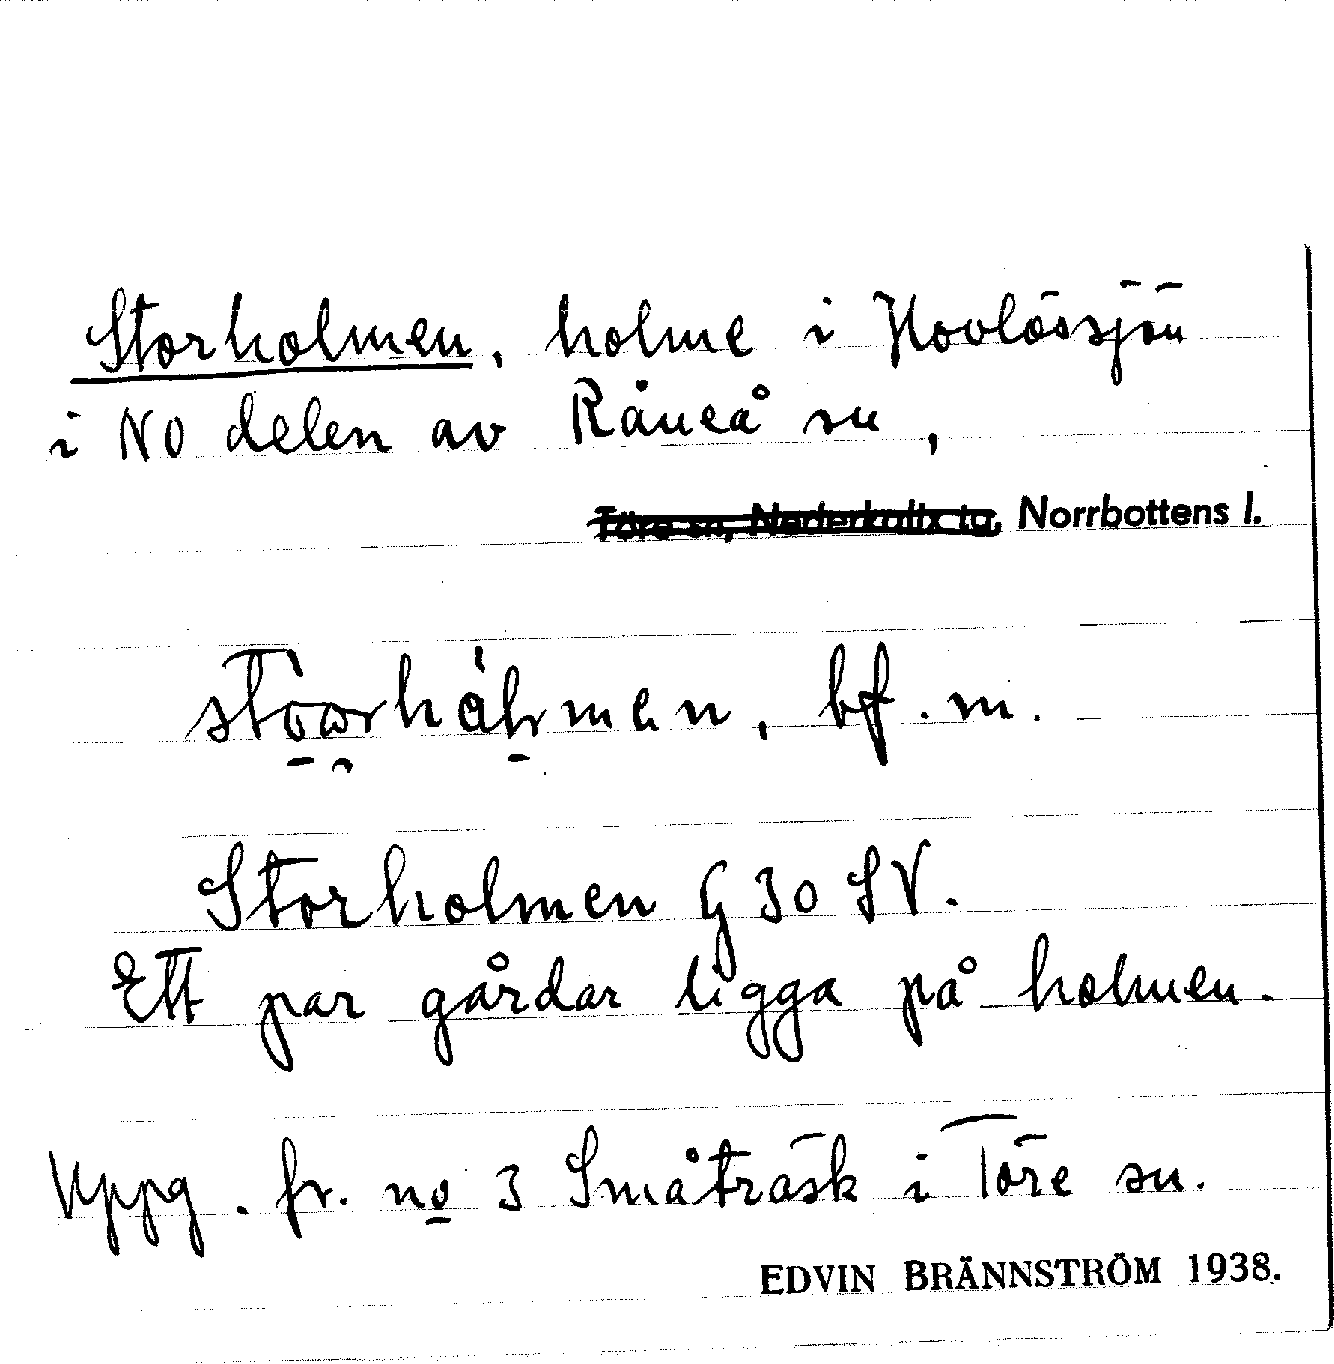 Storholmen, holme i Hovlössjön
i NO delen av Råneå sn,
Töre sn, Nederkalix tg, Norrbottens l.
bf. m.
Storholmen G 30 SV.
Ett par gårdar ligga på holmen.
Uppg. fr. no 3 Småträsk i Töre sn.
EDVIN BRÄNNSTRÖM 1938.